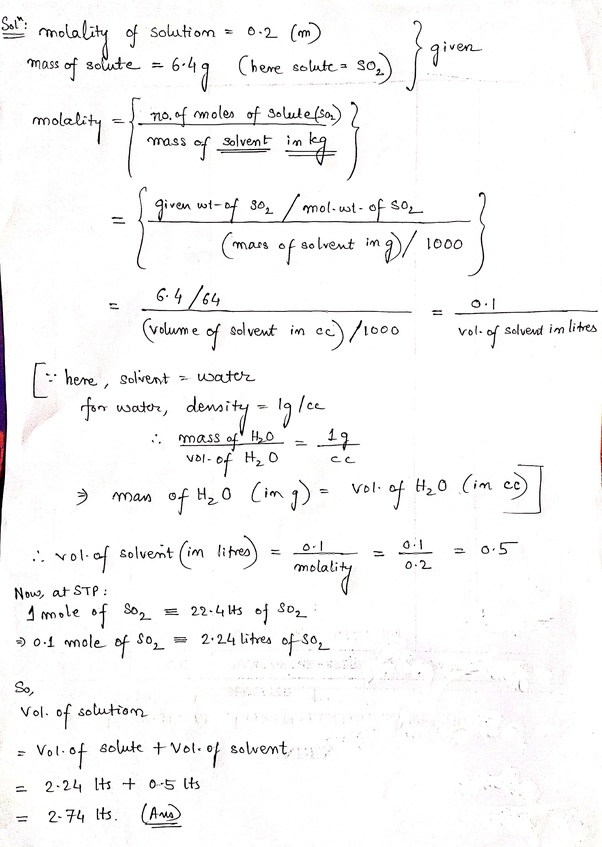 Solⁿ: molality of solution = 0.2 (m)
mass of solute = 6.4 g (here solute = SO₂) } given
molality = { no. of moles of solute (SO₂) / mass of solvent in kg }
= { given wt- of SO₂ / mol. wt- of SO₂ / (mass of solvent in g) / 1000 }
= 6.4/64 / (volume of solvent in cc) /1000 = 0.1 / vol. of solvent in litres
[∵ here, solvent = water
for water, density = 1g/cc
∴ mass of H₂O / vol. of H₂O = 1g / cc
⇒ mass of H₂O (in g) = vol. of H₂O (in cc)]
∴ vol. of solvent (in litres) = 0.1 / molality = 0.1 / 0.2 = 0.5
Now, at STP:
1 mole of SO₂ ≡ 22.4 lts of SO₂
⇒ 0.1 mole of SO₂ ≡ 2.24 litres of SO₂
So,
Vol. of solution
= Vol. of solute + Vol. of solvent
= 2.24 lts + 0.5 lts
= 2.74 lts. (Ans)